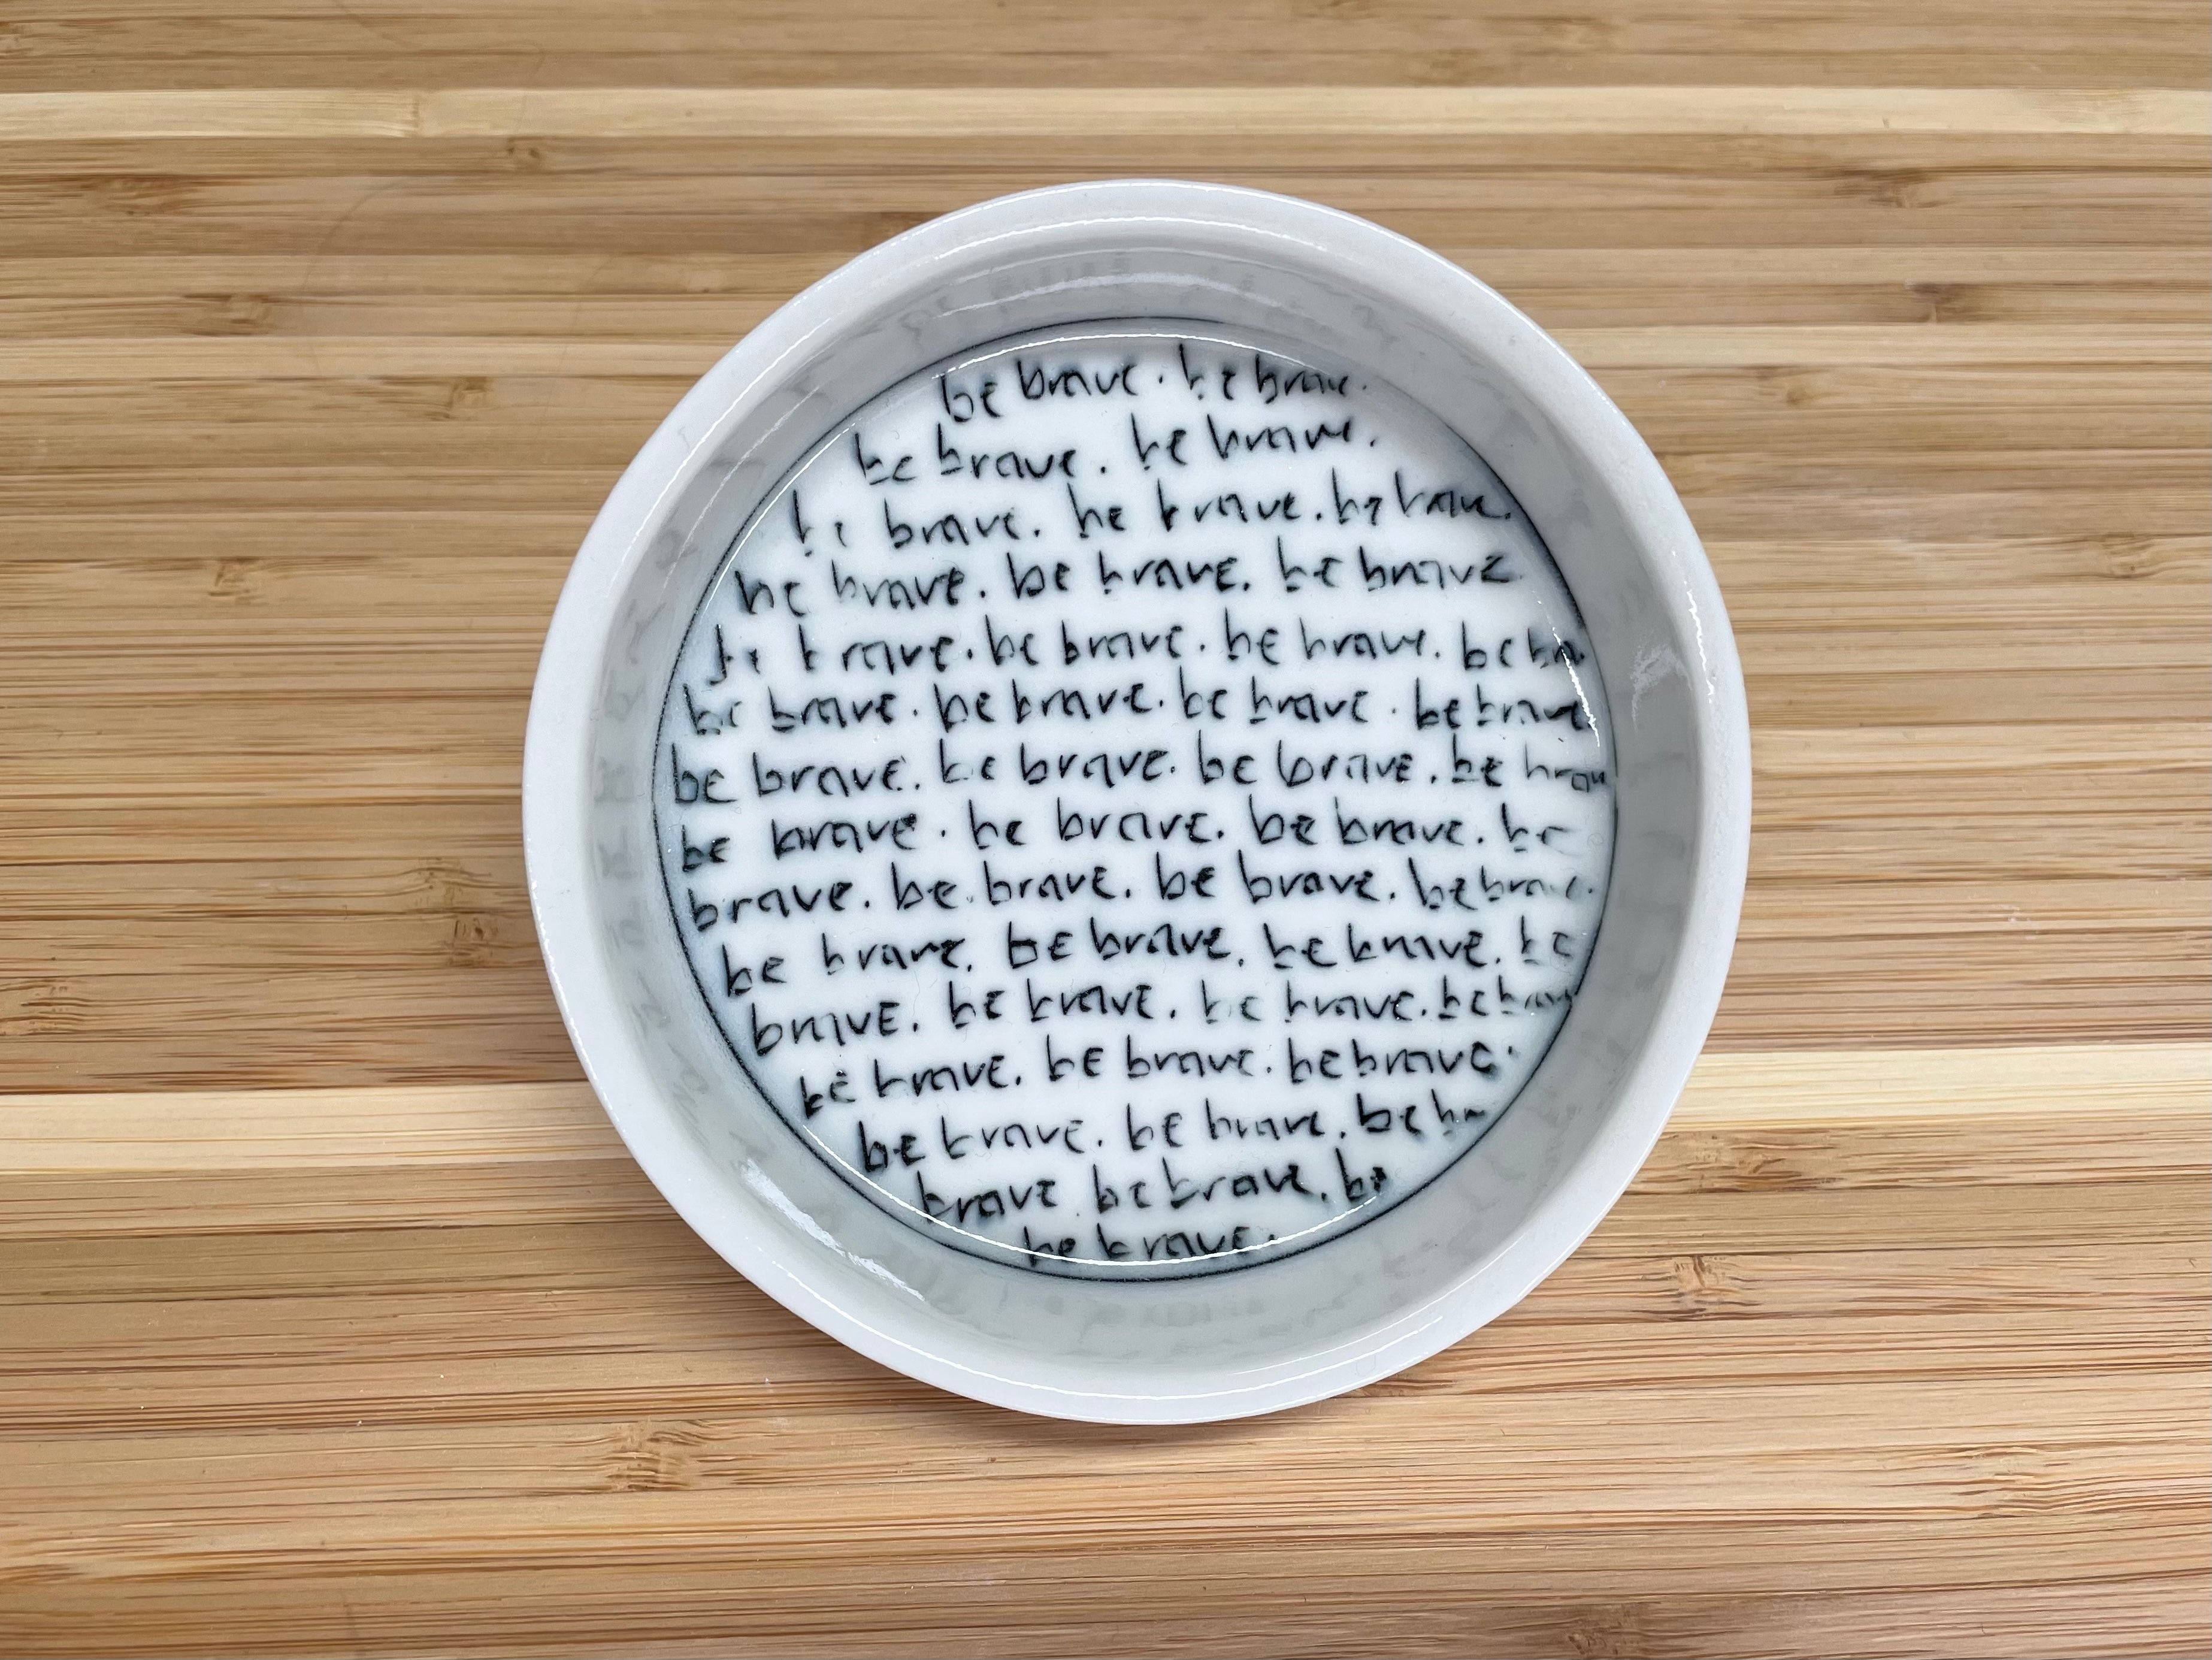 be brave. be brave.
be brave. be brave.
be brave. be brave. be brave.
be brave. be brave. be brave
be brave. be brave. be brave. be bra
be brave. be brave. be brave. be brave
be brave. be brave. be brave. be brav
be brave. be brave. be brave. be
brave. be brave. be brave. be brave.
be brave. be brave. be brave. be
brave. be brave. be brave. be brav
be brave. be brave. be brave.
be brave. be brave. be bra
brave be brave. be
be brave.